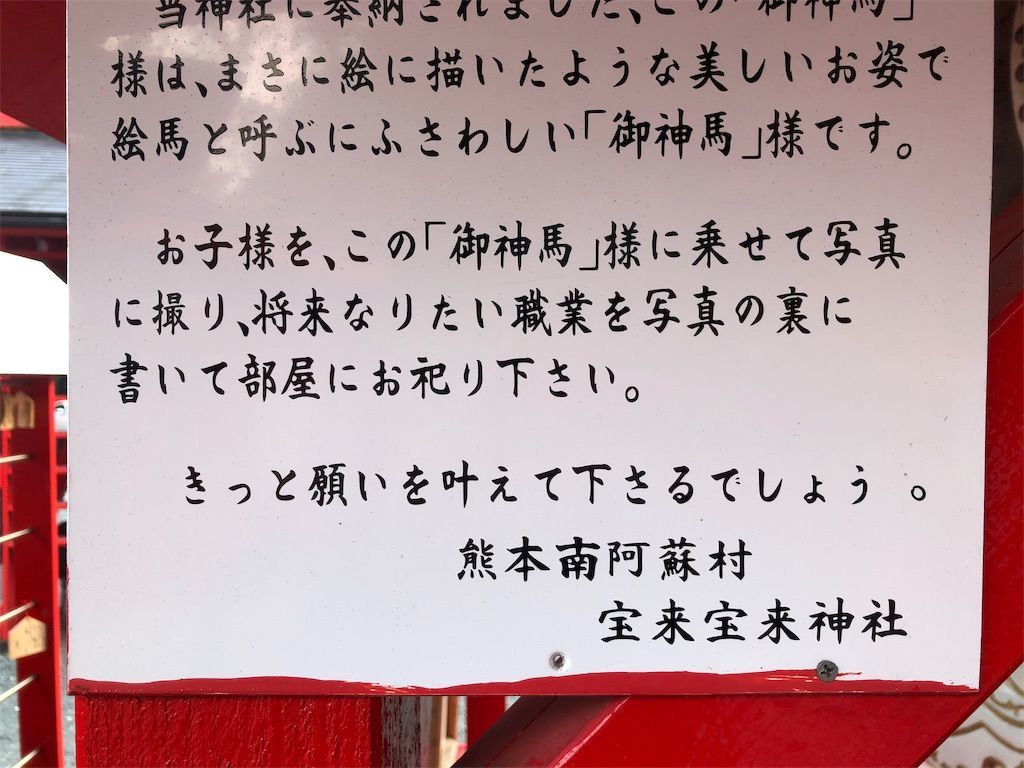 当神社に奉納されました、この「御神馬」
様は、まさに絵に描いたような美しいお姿で
絵馬と呼ぶにふさわしい「御神馬」様です。
お子様を、この「御神馬」様に乗せて写真
に撮り、将来なりたい職業を写真の裏に
書いて部屋にお祀り下さい。
きっと願いを叶えて下さるでしょう。
熊本南阿蘇村
宝来宝来神社